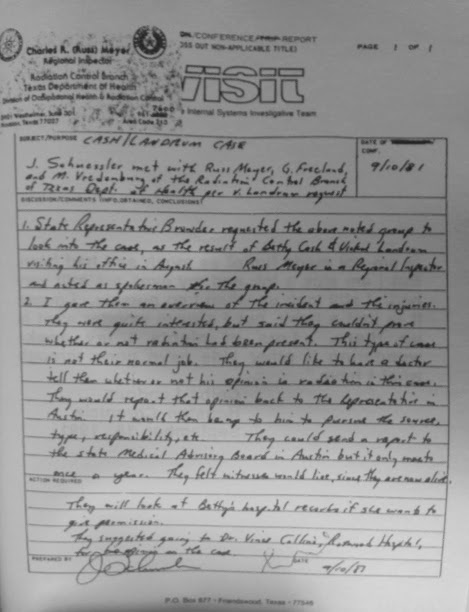 /CONFERENCE REPORT
OSS OUT NON-APPLICABLE TITLE)
PAGE 1 OF 1
Charles R. (Russ) Meyer
Regional Inspector
Radiation Control Branch
Texas Department of Health
Division of Occupational Health & Radiation Control
Texas 77027
VISIT
Internal Systems Investigative Team
SUBJECT/PURPOSE CASH/LANDRUM CASE
DATE OF
CONF.
9/10/81
J. Schuessler met with Russ Meyer, G. Freeland,
and M. Vredenburg at the Radiation Control Branch
of Texas Dept. of Health per V. Landrum request
DISCUSSION/COMMENTS (INFO. OBTAINED, CONCLUSIONS)
1. State Representative Browder requested the above noted group to
look into the case, as the result of Betty Cash & Vickie Landrum
visiting his office in August. Russ Meyer is a Regional Inspector
and acted as spokesman for the group.
2. I gave them an overview of the incident and the injuries.
They were quite interested, but said they couldn't prove
whether or not radiation had been present. This type of case
is not their normal job. They would like to have a doctor
tell them whether or not his opinion is radiation in this case.
They would report that opinion back to the representative in
Austin. It would then be up to him to pursue the source,
type, responsibility, etc. They could send a report to
the state Medical Advising Board in Austin but it only meets
once a year. They felt witnesses would live, since they are now alive.
ACTION REQUIRED
They will look at Betty's hospital records if she wants to
give permission.
They suggested going to Dr. Vince Collins, Hospital,
for opinion on the case.
PREPARED BY
DATE
9/10/81
P.O. Box 877 • Friendswood, Texas • 77546